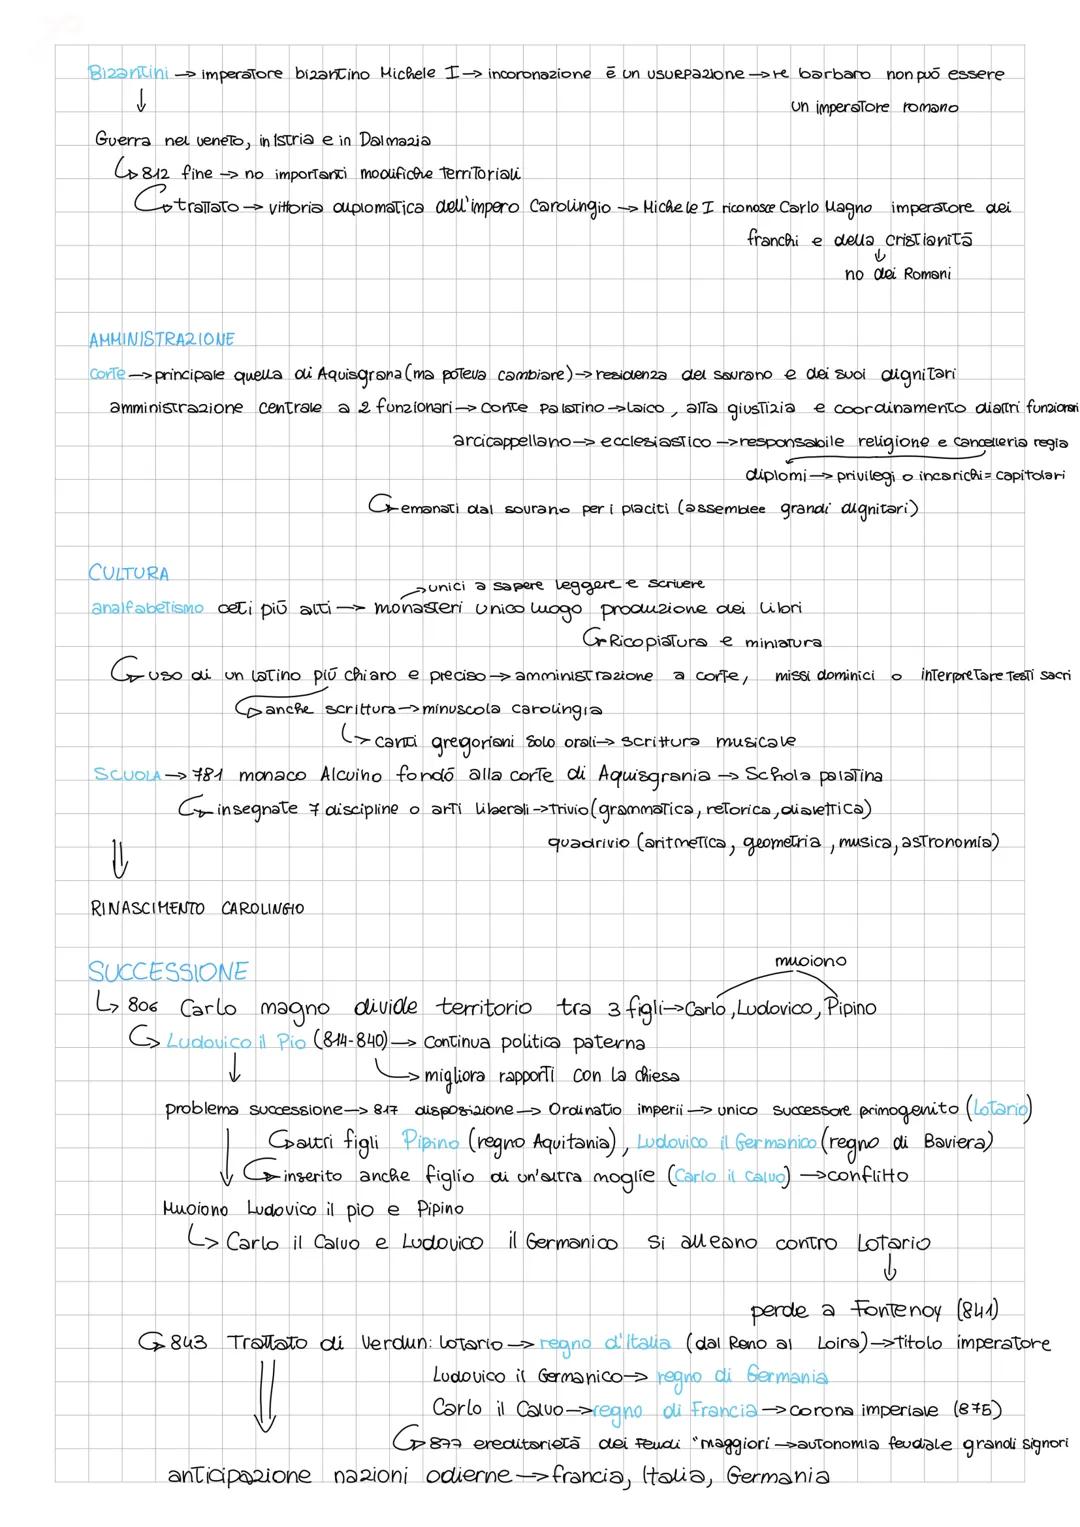 Bizantini → imperatore bizantino Michele I → incoronazione è un usurpazione → re barbaro non può essere
un imperatore romano
↓
Guerra nel veneto, in Istria e in Dalmazia
↳ 812 fine → no importanti modifiche territoriali
↳ trattato → vittoria diplomatica dell'impero Carolingio → Michele I riconosce Carlo Magno imperatore dei
franchi e della cristianità
↓
no dei Romani
AMMINISTRAZIONE
corte → principale quella di Aquisgrana (ma poteva cambiare) → residenza del sovrano e dei suoi dignitari
amministrazione centrale a 2 funzionari → conte palatino → laico, alta giustizia e coordinamento di altri funzionari
arcicappellano → ecclesiastico → responsabile religione e cancelleria regia
diplomi → privilegi o incarichi = capitolari
↳ emanati dal sovrano per i placiti (assemblee grandi dignitari)
CULTURA
→ unici a sapere leggere e scrivere
analfabetismo ceti più alti → monasteri unico luogo produzione dei libri
↳ Ricopiatura e miniatura
↳ uso di un latino più chiaro e preciso → amministrazione a corte, missi dominici o interpretare testi sacri
↳ anche scrittura → minuscola carolingia
↳ canti gregoriani solo orali → scrittura musicale
SCUOLA → 781 monaco Alcuino fondò alla corte di Aquisgrania → Schola palatina
↳ insegnate 7 discipline o arti liberali → trivio (grammatica, retorica, dialettica)
quadrivio (aritmetica, geometria, musica, astronomia)
⇓
RINASCIMENTO CAROLINGIO
SUCCESSIONE
muoiono
↳ 806 Carlo magno divide territorio tra 3 figli → Carlo, Ludovico, Pipino
↳ Ludovico il Pio (814-840) → continua politica paterna
↓ → migliora rapporti con la chiesa
problema successione → 817 disposizione → Ordinatio imperii → unico successore primogenito (Lotario)
↳ altri figli Pipino (regno Aquitania), Ludovico il Germanico (regno di Baviera)
↓ ↳ inserito anche figlio di un'altra moglie (Carlo il Calvo) → conflitto
Muoiono Ludovico il pio e Pipino
↳ Carlo il Calvo e Ludovico il Germanico si alleano contro Lotario
↓
perde a Fontenoy (841)
↳ 843 Trattato di Verdun: Lotario → regno d'Italia (dal Reno al Loira) → titolo imperatore
Ludovico il Germanico → regno di Germania
Carlo il Calvo → regno di Francia → corona imperiale (875)
⇓ ↳ 877 ereditarietà dei feudi "maggiori → autonomia feudale grandi signori
anticipazione nazioni odierne → francia, Italia, Germania